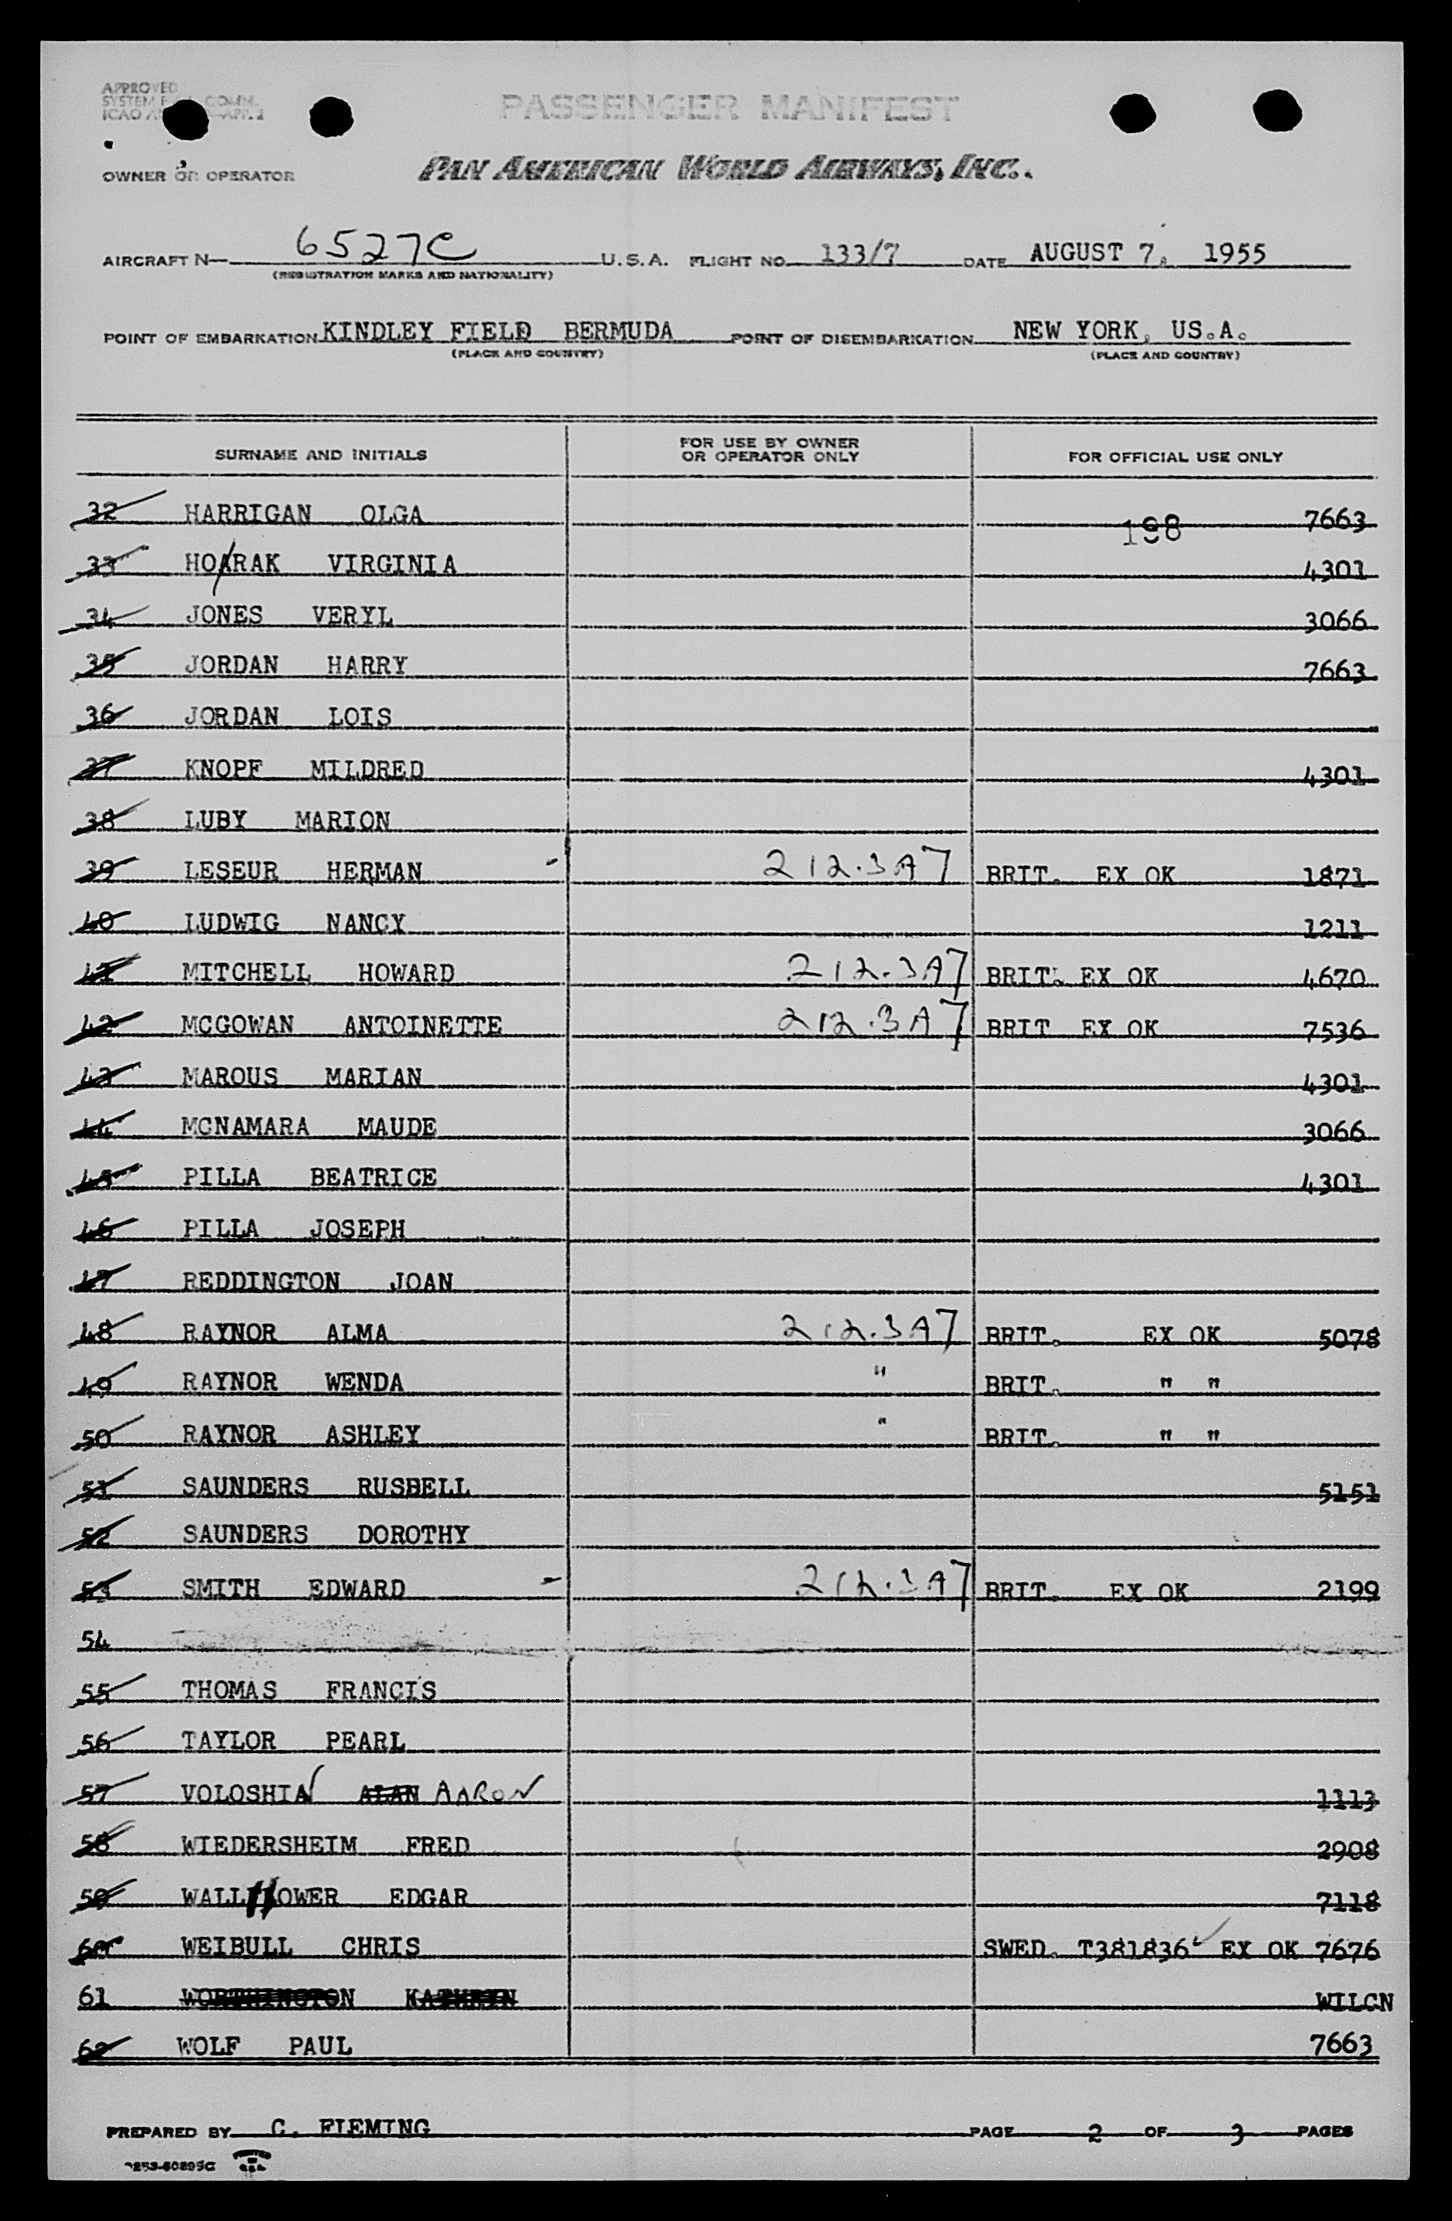 APPROVED
SYSTEM COMM.
ICAO
PASSENGER MANIFEST
OWNER OR OPERATOR PAN AMERICAN WORLD AIRWAYS, INC.
AIRCRAFT N— 6527C U.S.A. FLIGHT NO. 133/7 DATE AUGUST 7, 1955
(REGISTRATION MARKS AND NATIONALITY)
POINT OF EMBARKATION KINDLEY FIELD BERMUDA POINT OF DISEMBARKATION NEW YORK, US.A.
(PLACE AND COUNTRY) (PLACE AND COUNTRY)
SURNAME AND INITIALS FOR USE BY OWNER OR OPERATOR ONLY FOR OFFICIAL USE ONLY
32 HARRIGAN OLGA 198 7663
33 HO/RAK VIRGINIA 4301
34 JONES VERYL 3066
35 JORDAN HARRY 7663
36 JORDAN LOIS
37 KNOPF MILDRED 4301
38 LUBY MARION
39 LESEUR HERMAN - 212.3A7 BRIT. EX OK 1871
40 LUDWIG NANCY 1211
41 MITCHELL HOWARD 212.3A7 BRIT. EX OK 4670
42 MCGOWAN ANTOINETTE 212.3A7 BRIT EX OK 7536
43 MAROUS MARIAN 4301
44 MCNAMARA MAUDE 3066
45 PILLA BEATRICE 4301
46 PILLA JOSEPH
47 REDDINGTON JOAN
48 RAYNOR ALMA 212.3A7 BRIT. EX OK 5078
49 RAYNOR WENDA " BRIT. " "
50 RAYNOR ASHLEY " BRIT. " "
51 SAUNDERS RUSBELL 5151
52 SAUNDERS DOROTHY
53 SMITH EDWARD - 212.3A7 BRIT. EX OK 2199
54
55 THOMAS FRANCIS
56 TAYLOR PEARL
57 VOLOSHIN ALAN AARON 1113
58 WIEDERSHEIM FRED 2908
59 WALLHOWER EDGAR 7118
60 WEIBULL CHRIS SWED. T381836 EX OK 7676
61 WORTHINGTON KATHRYN WILCN
62 WOLF PAUL 7663
PREPARED BY C. FLEMING PAGE 2 OF 3 PAGES